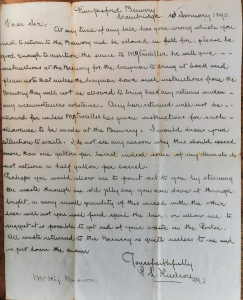 Hampsford Brewery
Cambridge 16 January 1970.
Dear Sir,
At any time if any beer has gone wrong which you
wish to return to the Brewery and be allowed in full for, please be
good enough to mention the same to Mr         he will give
instructions at the Brewery for the drayman to bring it back and
please note that unless the draymen have such instructions from the
Brewery they will not be allowed to bring back any returns under
any circumstances whatever. Any beer returned will not be
allowed for unless Mr         has given instructions for such
allowance to be made at the Brewery. I would draw your
attention to waste. I do not see any reason why this should exceed
more than one gallon per barrel, indeed some of my friends do
not return a half gallon per barrel.
Perhaps you would allow me to point out to you by straining
the waste through an old jelly bag, you can draw it through
bright, a very small quantity of this mixed with the other
beer will not you will find spoil the beer, or allow me to
suggest it is possible to get rid of your waste in the Porter.
All waste returned to the Brewery is quite useless to me and
is put down the drain
Yours faithfully
Hudson